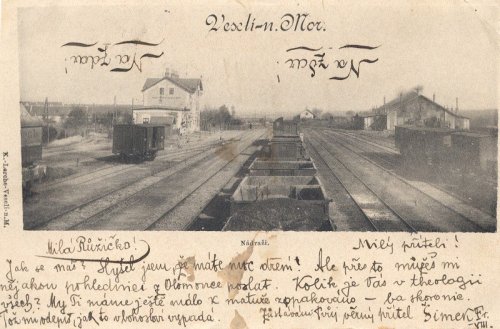 Veselí-n. Mor.
Na zdar!
Na zdar!
K. Lerche-Veselí-n. M.
Nádraží.
Milá Růžičko!
Milý příteli!
Jak se máš? Slyšel jsem, že máte moc dření! Ale přes to můžeš mi
nějakou pohlednici z Olomouce poslat. Kolik je Vás v theologii
všech? My Ti máme ještě málo z matury zopakováno – ba skoro nic.
jak to v loňosovi vypadá. Zůstávám Tvůj věrný přítel Šimek Fr.